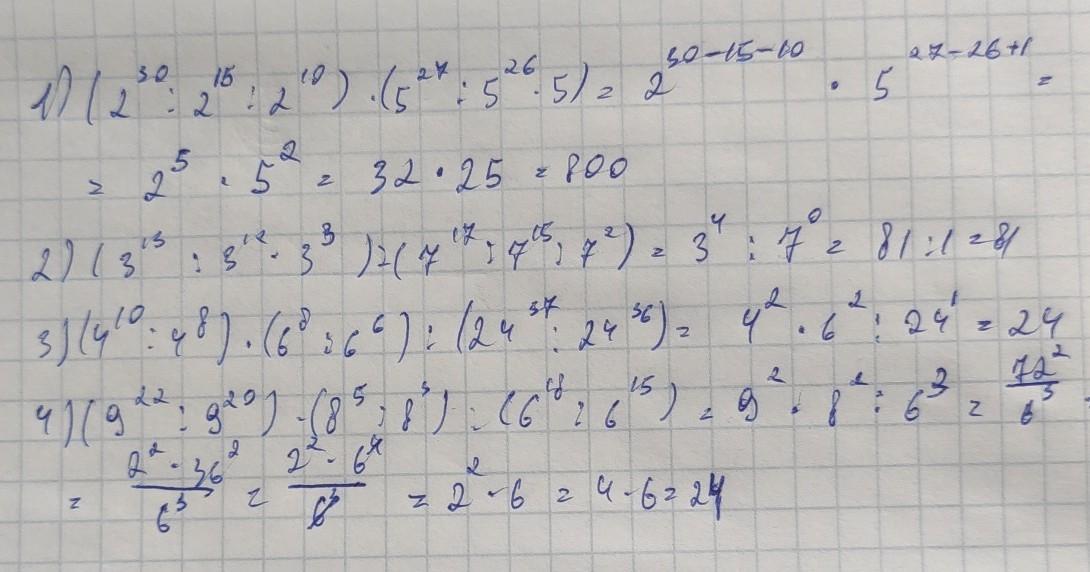 1) (2³⁰ : 2¹⁵ : 2¹⁰) · (5²⁷ : 5²⁶ · 5) = 2³⁰⁻¹⁵⁻¹⁰ · 5²⁷⁻²⁶⁺¹ =
= 2⁵ · 5² = 32 · 25 = 800
2) (3¹³ : 3¹² · 3³) : (7¹⁷ : 7¹⁵ : 7²) = 3⁴ : 7⁰ = 81 : 1 = 81
3) (4¹⁰ : 4⁸) · (6⁸ : 6⁶) : (24³⁷ : 24³⁶) = 4² · 6² : 24¹ = 24
4) (9²² : 9²⁰) · (8⁵ : 8³) : (6¹⁸ : 6¹⁵) = 9² · 8² : 6³ = 72²/6³ =
= 2² · 36²/6³ = 2² · 6⁴/6³ = 2² · 6 = 4 · 6 = 24